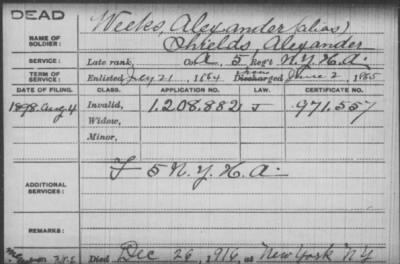 DEAD
NAME OF SOLDIER: Weeks, Alexander (alias)
Shields, Alexander
SERVICE: Late rank, Co. A, 5 Reg't N.Y.H.A.
TERM OF SERVICE: Enlisted July 21, 1864 Discharged June 2, 1865
DATE OF FILING. CLASS. APPLICATION NO. LAW. CERTIFICATE NO.
1898 Aug. 4 Invalid, 1.208.882 J 971.557
Widow,
Minor,
ADDITIONAL SERVICES: F 5 N.Y.H.A.
REMARKS:
Died Dec 26, 1916, at New York NY